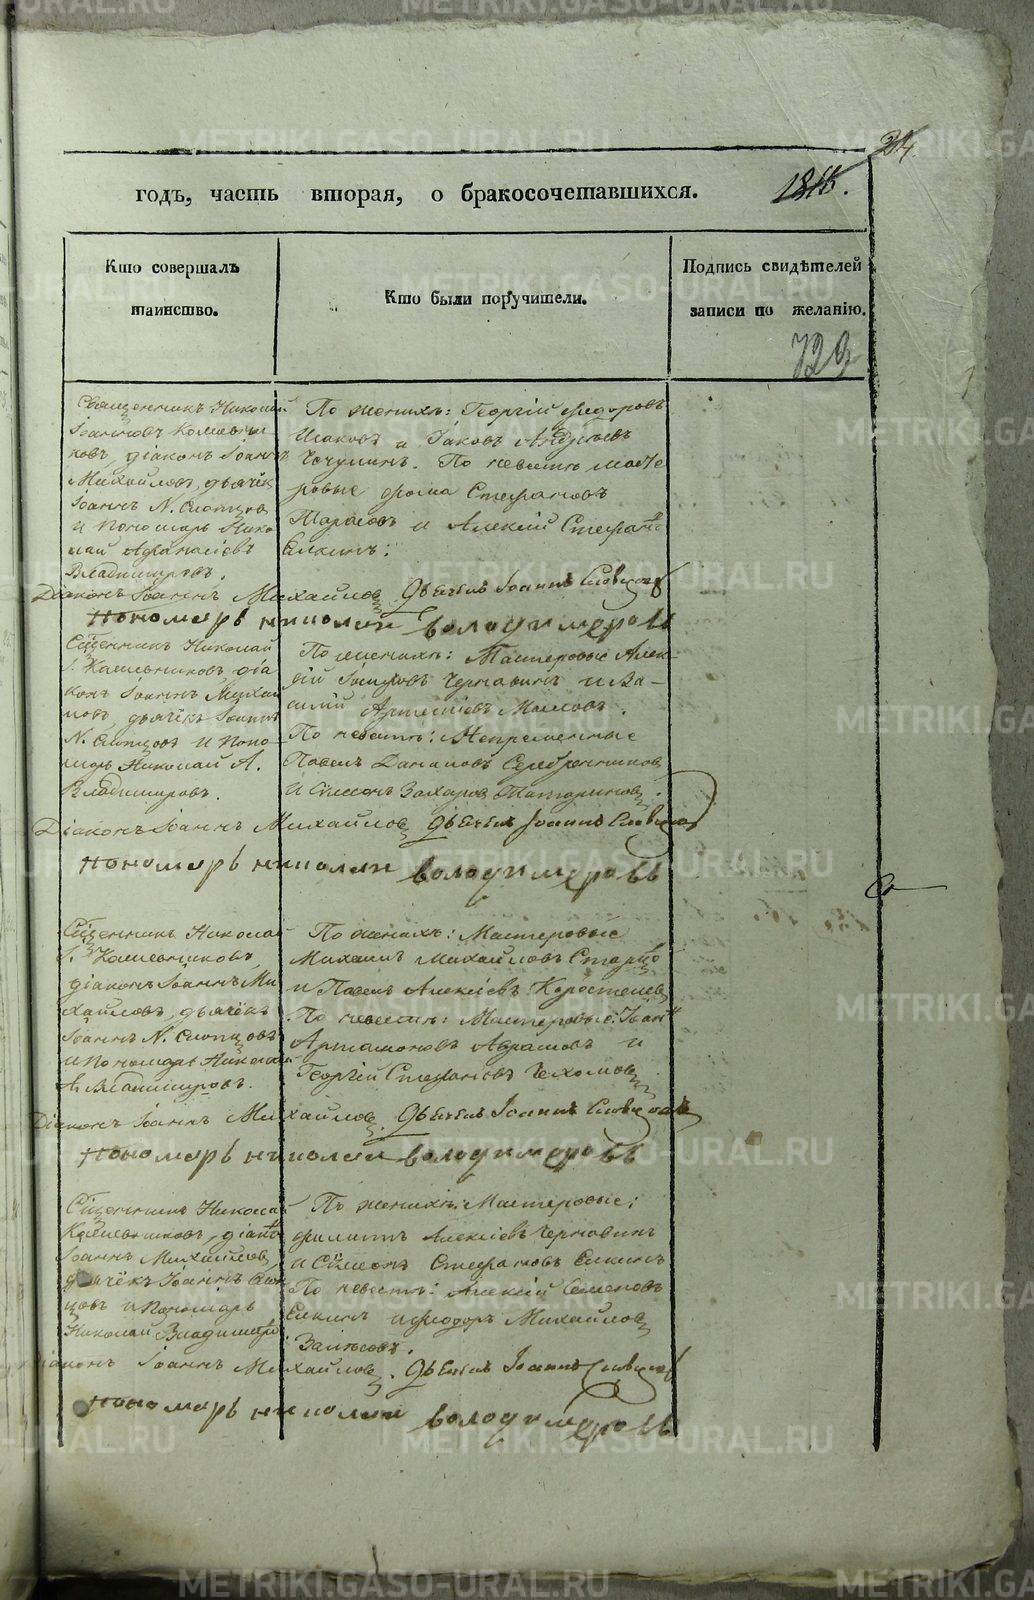 годъ, часть вторая, о бракосочетавшихся.
Кто совершалъ
таинство.
Кто были поручители.
Подпись свидѣтелей
записи по желанію.
729
Священникъ Николай
Іоанновъ
ковъ, діаконъ Іоаннъ
Михайловъ, дьячёкъ
Іоаннъ N. Словцовъ
и Пономарь Нико-
лай Афанасіевъ
Владимировъ.
По женихѣ: Георгій Федоровъ
Исаковъ и Іаковъ Андреевъ
Чечулинъ. По невестѣ масте
ровые Фома Стефановъ
Тарасовъ и Алексій Стефановъ
Елкинъ:
Діаконъ Іоаннъ Михайловъ. Дьечекъ Іоаннъ Словцовъ
пономарь николай володимеровъ
Сщенникъ Николай
І. Камешниковъ, діа
конъ Іоаннъ Михай
ловъ, дьячёкъ Іоаннъ
N. Словцовъ и Поно-
марь Николай А.
Владимировъ.
По женихѣ: Мастеровые Алек-
сій Чернавинъ и Ва-
силій Артеміевъ Масловъ.
По невестѣ: Непременные
Павелъ Даниловъ Серебренниковъ
и Сѵмеонъ Захаровъ Татариновъ.
Діаконъ Іоаннъ Михайловъ. Дьечекъ Іоаннъ Словцовъ
пономарь николай володимеровъ
Сщенникъ Николай
І. Камешниковъ,
діаконъ Іоаннъ Ми
хайловъ, дьячёкъ
Іоаннъ N. Словцовъ
и Пономарь Николай
А. Владимировъ.
По женихѣ: Мастеровые
Михаилъ Михайловъ
и Павелъ Алексіевъ Коростелевъ
По невестѣ: Мастеровые: Іоаннъ
Артамоновъ Аврамовъ и
Георгій Стефановъ Чехомовъ
Діаконъ Іоаннъ Михайловъ. Дьечекъ Іоаннъ Словцовъ
пономарь николай володимеровъ
Сщенникъ Николай
Камешниковъ, діаконъ
Іоаннъ Михайловъ,
дьячёкъ Іоаннъ Слов
цовъ и Пономарь
Николай Владимеръ
По женихѣ: Мастеровые:
Филиппъ Алексіевъ Черновинъ
и Сѵмеонъ Стефановъ Елкинъ
По невестѣ: Алексій Семеновъ
Елкинъ и Феодоръ Михайловъ
Залѣсовъ.
Діаконъ Іоаннъ Михайловъ. Дьечекъ Іоаннъ Словцовъ
пономарь николай володимеровъ
METRIKI.GASO-URAL.RU